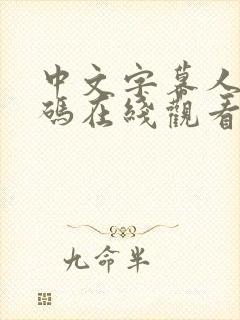 中文字幕人
碼在綫觀看
九命半